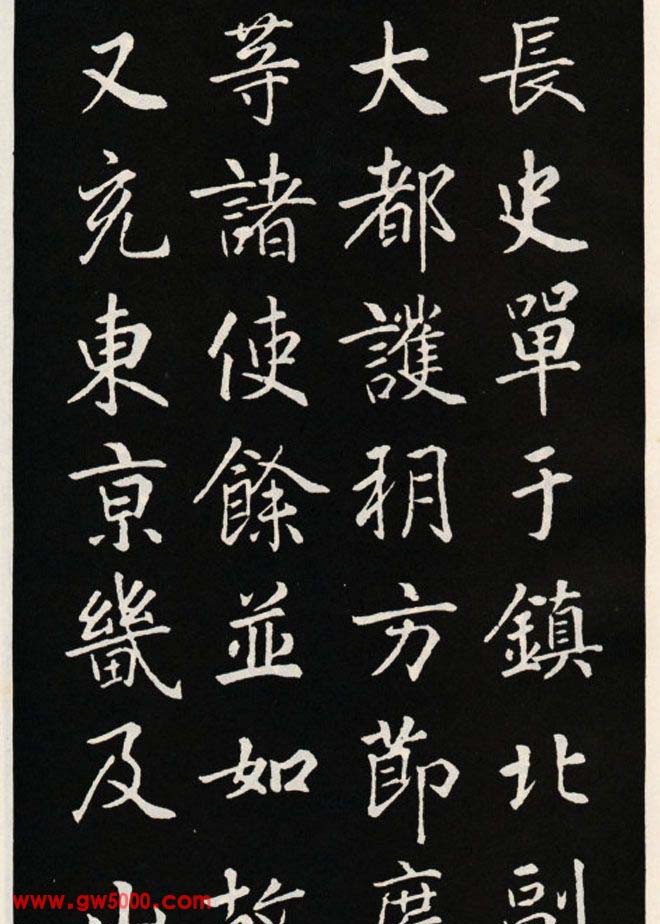 長史單于鎮北副
大都護朔方節度
等諸使餘並如故
又充東亰畿及山
www.gw5000.com